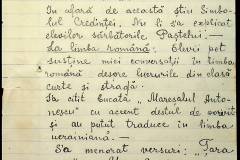 In afară de aceasta știu Simbo-
lul Credinței. Nu li s'a explicat
elevilor sărbătorile Paștelui.—
La limba română: Elevii pot
susține mici conversații în limba
română despre lucrurile din clasă
curte și stradă.
Sa citit bucata, „Mareșalul Anto-
nescu" cu acent destul de vorovit
și au putut traduce în limba
ucrainiană.
S'a memorat versuri: „Țara